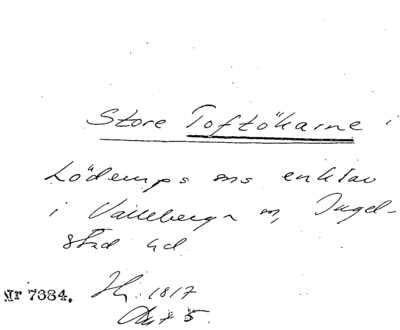 Store Toftökarne i
Löderups sns enklav
i Valleberga sn, Ingel-
stad hd
Nr 7384. Hg. 1817
Akt 5.